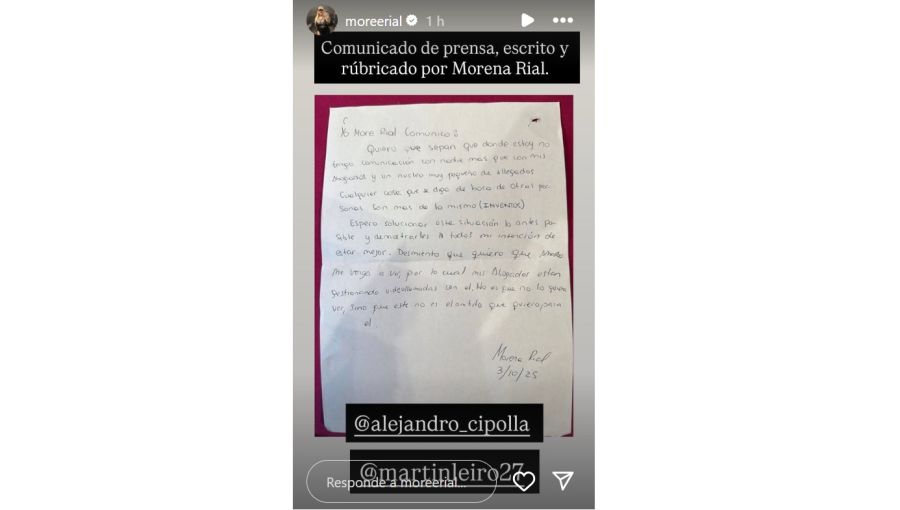 moreerial 1 h
Comunicado de prensa, escrito y
rúbricado por Morena Rial.
Yo More Rial Comunico:
Quiero que sepan que donde estoy no
tengo comunicación con nadie mas que con mis
Abogados y un nucleo muy pequeño de allegados
Cualquier cosa que se diga de boca de otras per
sonas son mas de lo mismo (INVENTOS)
Espero solucionar esta situación lo antes po
sible y demostrarles a todos mi intención de
estar mejor. Desmiento que quiero que
me venga a ver, por lo cual mis Abogados estan
gestionando videollamadas con el. No es que no lo quiera
ver, sino que este no es el ambito que quiero para
el.
Morena Rial
3/10/25
@alejandro_cipolla
@martinleiro27
Responde a moreerial...